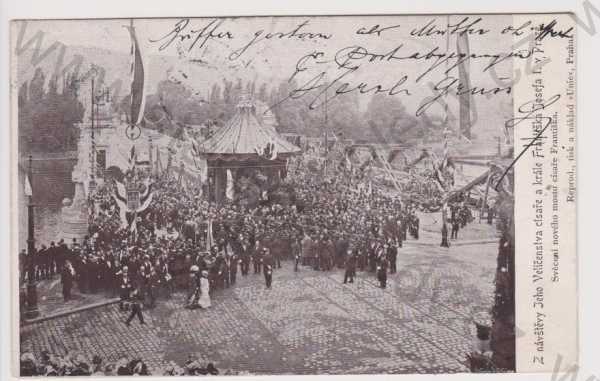 Büffer gestern als Muster oh. Wert
pr. Post abgegangen
Herzl. Gruss
Z návštěvy Jeho Veličenstva císaře a krále Františka Josefa I. v Praze
Svěcení nového mostu císaře Františka.
Reprod., tisk a náklad »Unie«, Praha